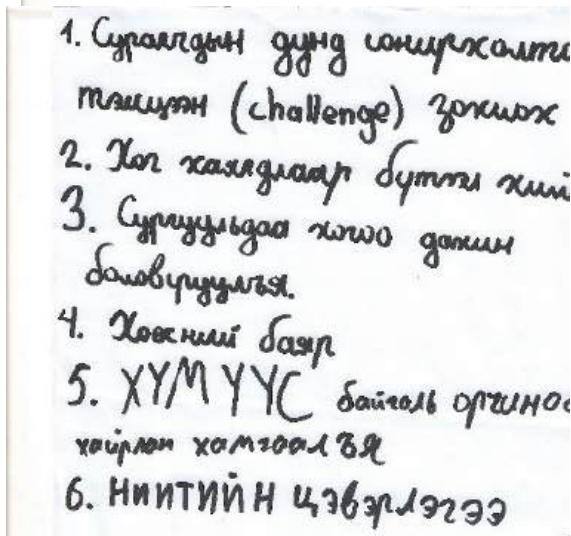 1. Сурагчдын дунд сонирхолто
тэмцээн (challenge) зохиох
2. Хог хаягдлаар бүтээл хий
3. Сургуульдаа хогоо дахин
боловсруулъя.
4. баяр
5. ХҮМҮҮС байгаль орчиноо
хайрлан хамгаалъя
6. Ниитийн цэвэрлэгээ